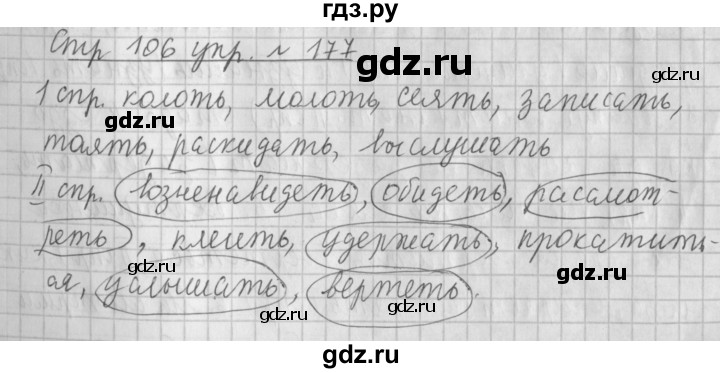 гдз.ру
Стр 106 упр. № 177
gdz.ru
1 спр. колоть, молоть, сеять, записать,
gdz.ru
gdz.ru
таять, раскидать, выслушать
gdz.ru
II спр. возненавидеть, обидеть, рассмот-
gdz.ru
gdz.ru
реть, клеить, удержать, прокатить-
gdz.ru
gdz.ru
ся, услышать, вертеть.
gdz.ru
gdz.ru
gdz.ru